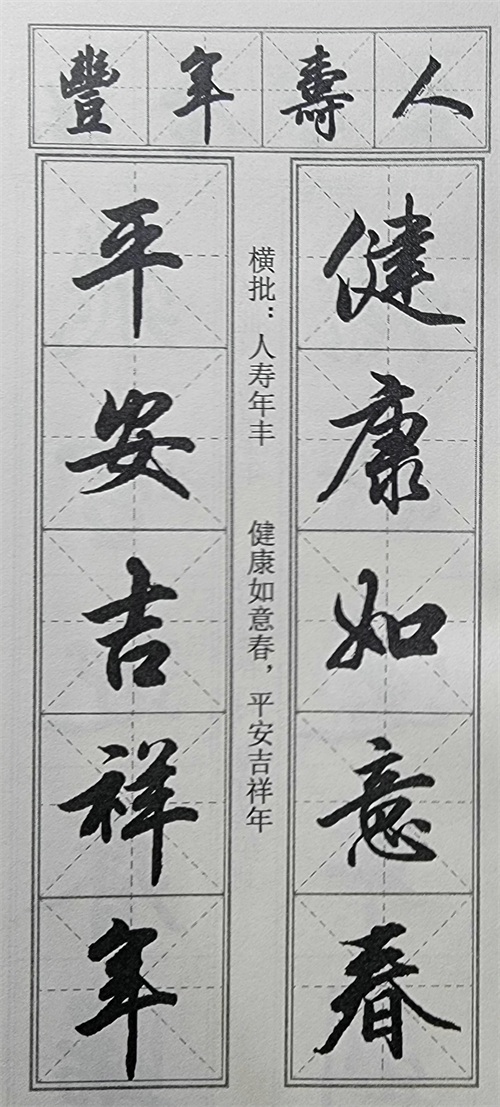 人壽年豐
健康如意春
横批：人寿年丰 健康如意春，平安吉祥年
平安吉祥年